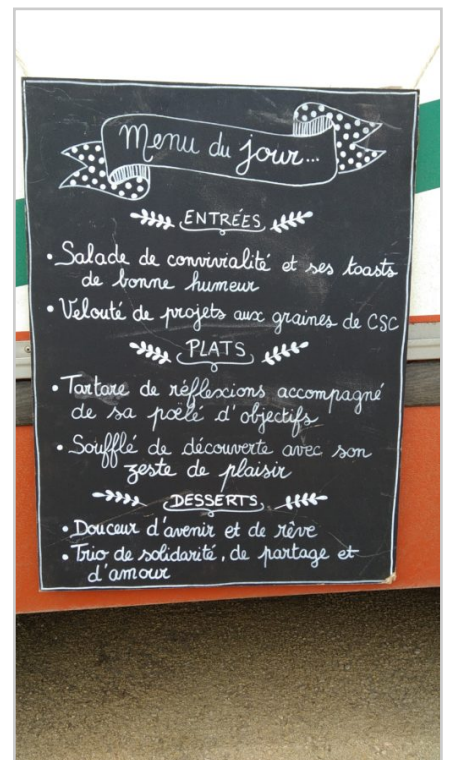 Menu du jour...
ENTRÉES
• Salade de convivialité et ses toasts
de bonne humeur
• Velouté de projets aux graines de CSC
PLATS
• Tartare de réflexions accompagné
de sa poêlé d'objectifs
• Soufflé de découverte avec son
zeste de plaisir
DESSERTS
• Douceur d'avenir et de rêve
• Trio de solidarité, de partage et
d'amour